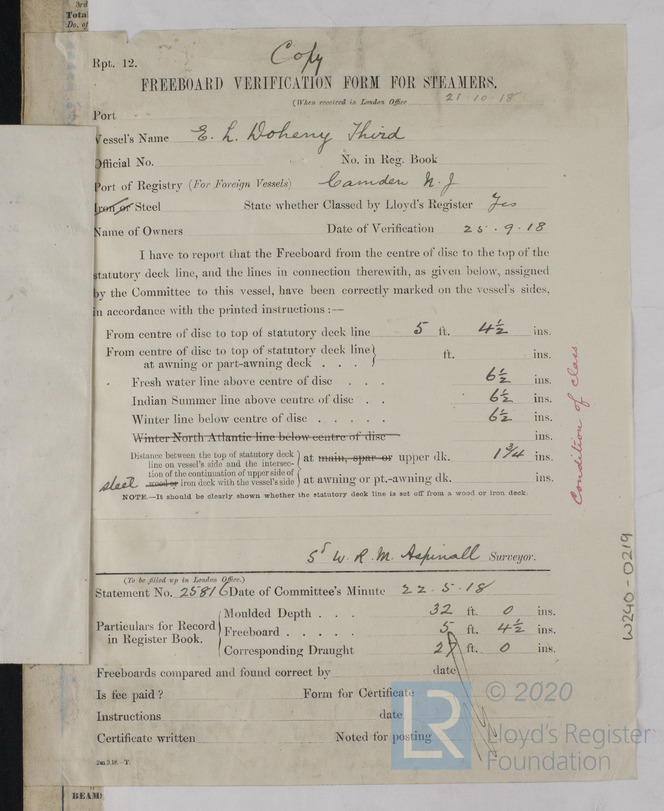 3rd
Total
Do. of
Rpt. 12.
Copy
FREEBOARD VERIFICATION FORM FOR STEAMERS.
(When received in London Office 21.10.18
Port
Vessel's Name E. L. Doheny Third
Official No. No. in Reg. Book
Port of Registry (For Foreign Vessels) Camden N.J
Iron or Steel State whether Classed by Lloyd's Register Yes
Name of Owners Date of Verification 25.9.18
I have to report that the Freeboard from the centre of disc to the top of the
statutory deck line, and the lines in connection therewith, as given below, assigned
by the Committee to this vessel, have been correctly marked on the vessel's sides,
in accordance with the printed instructions :—
From centre of disc to top of statutory deck line 5 ft. 4½ ins.
From centre of disc to top of statutory deck line
at awning or part-awning deck . . . ft. ins.
Fresh water line above centre of disc . . . 6½ ins.
Indian Summer line above centre of disc . . 6½ ins.
Winter line below centre of disc . . . . . 6½ ins.
Winter North Atlantic line below centre of disc ins.
Distance between the top of statutory deck
line on vessel's side and the intersec-
tion of the continuation of upper side of
steel wood or iron deck with the vessel's side
at main, spar or upper dk. 1¾ ins.
at awning or pt.-awning dk. ins.
NOTE.—It should be clearly shown whether the statutory deck line is set off from a wood or iron deck.
Condition of class
W240-0219
Sd W. R. M. Aspinall Surveyor.
(To be filled up in London Office.)
Statement No. 25816 Date of Committee's Minute 22.5.18
Particulars for Record
in Register Book.
Moulded Depth . . . 32 ft. 0 ins.
Freeboard . . . . . 5 ft. 4½ ins.
Corresponding Draught 27 ft. 0 ins.
Freeboards compared and found correct by date
Is fee paid ? Form for Certificate
Instructions date
Certificate written Noted for posting
2m.9.18.—T.
BEAM
LR
© 2020
Lloyd's Register
Foundation